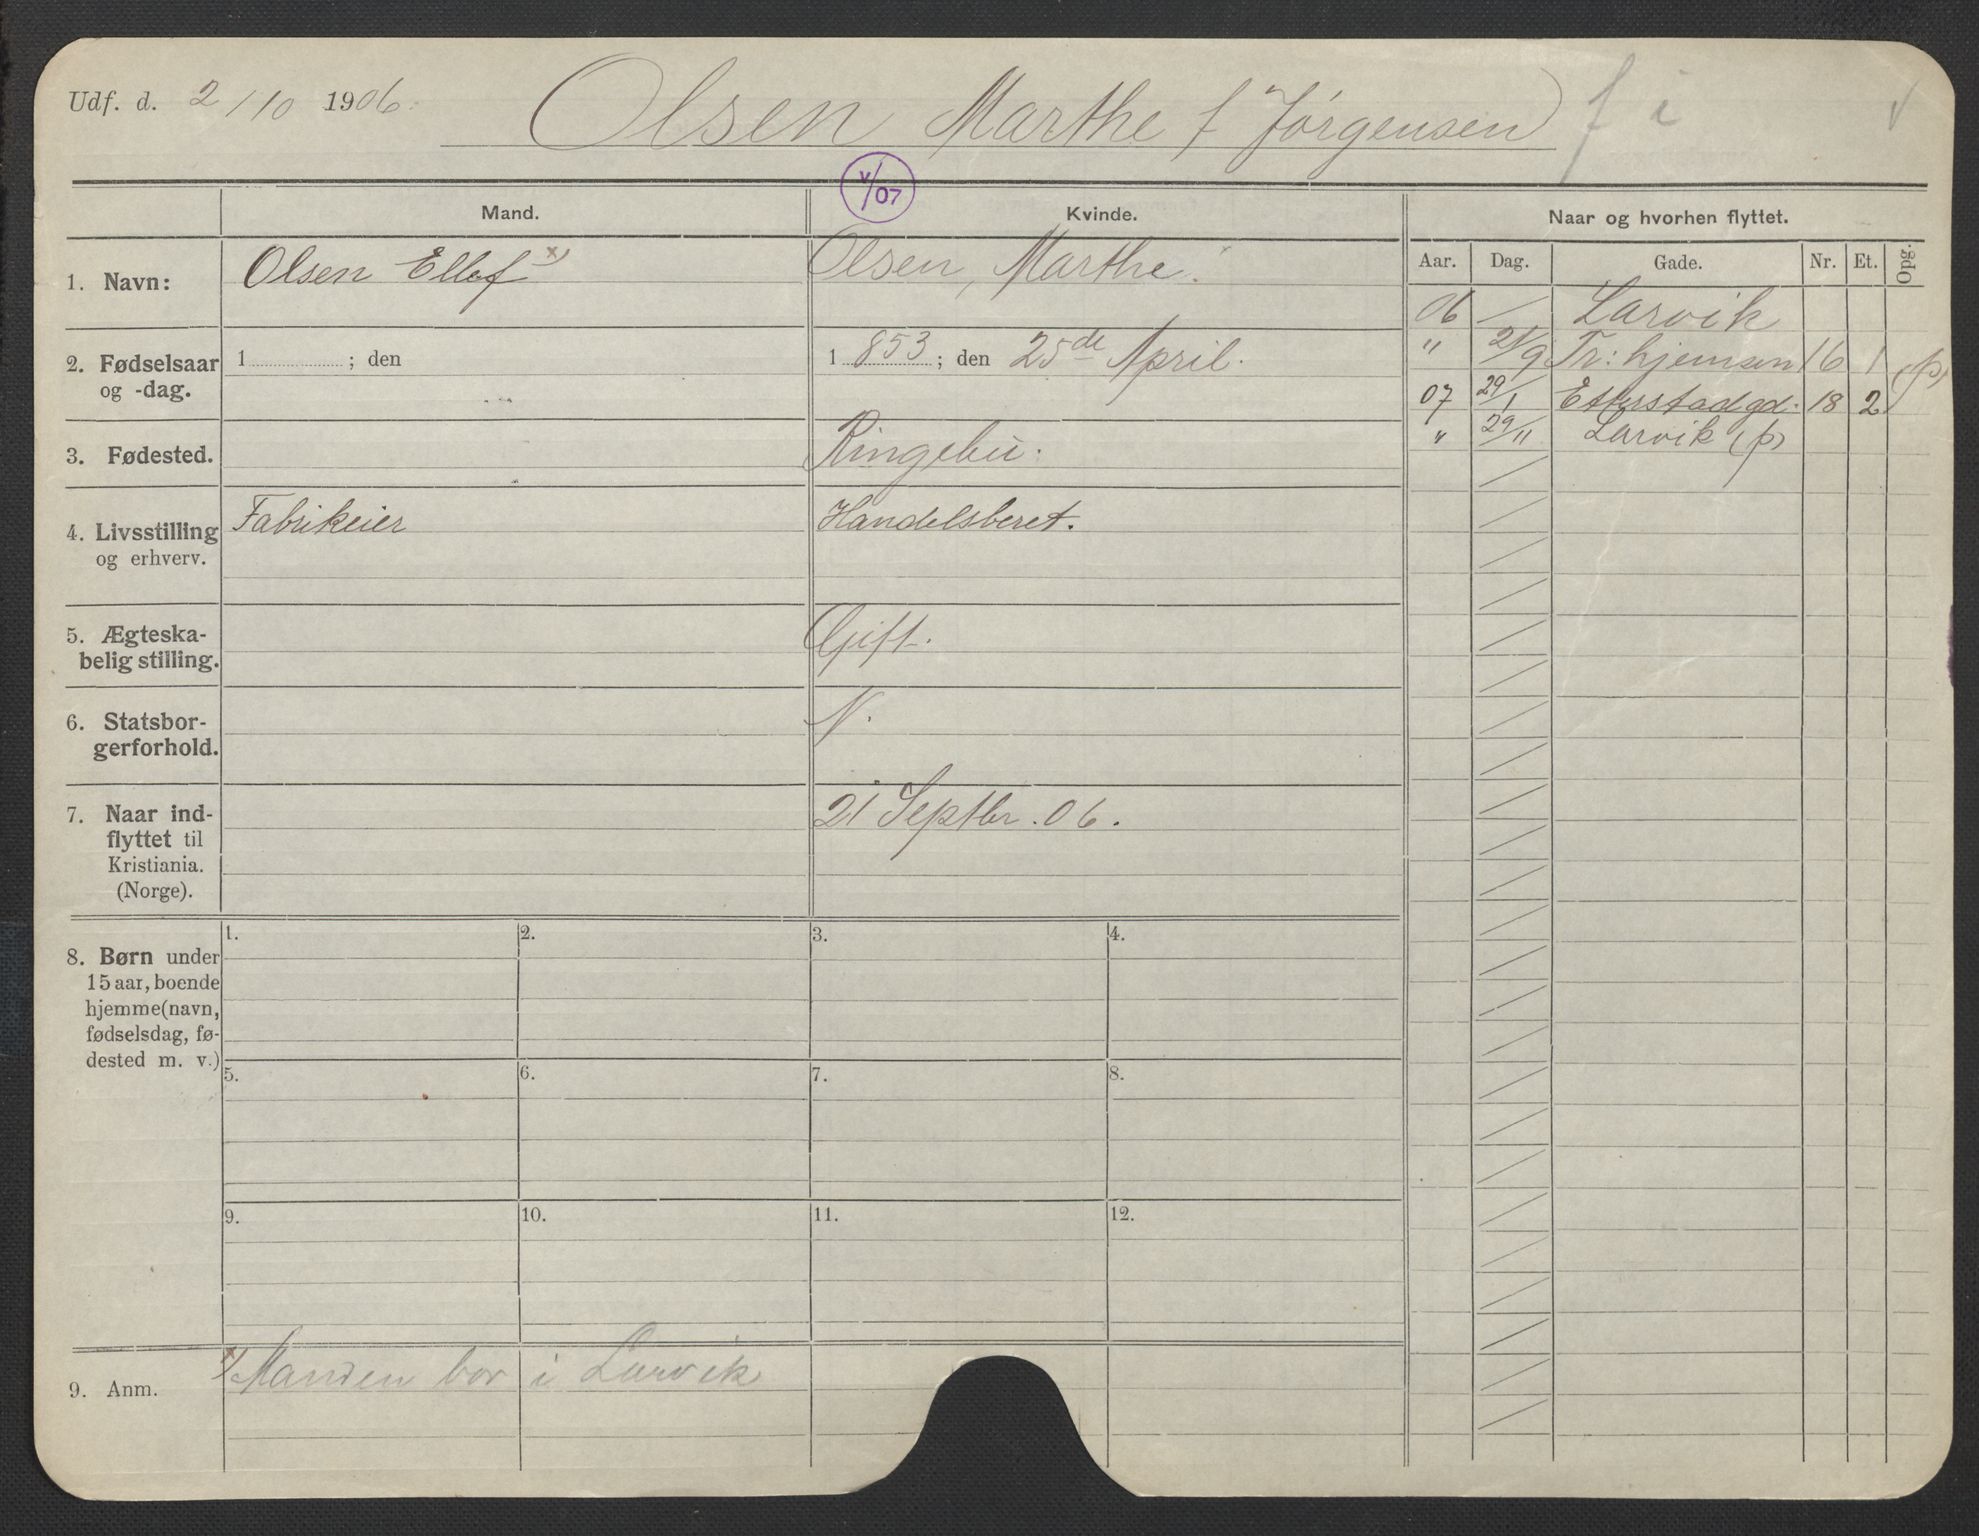 Udf. d. 2/10 1906.
Olsen Marthe f Jørgensen
f i
v/07
Mand.
Kvinde.
Naar og hvorhen flyttet.
Aar. Dag. Gade. Nr. Et. Opg.
1. Navn:
Olsen Ellef x)
Olsen, Marthe.
2. Fødselsaar
og -dag.
1 ; den
1 853 ; den 25de April.
3. Fødested.
Ringebu.
4. Livsstilling
og erhverv.
Fabrikeier
Handelsberet.
5. Ægteska-
belig stilling.
Gift.
6. Statsbor-
gerforhold.
N.
7. Naar ind-
flyttet til
Kristiania.
(Norge).
21 Septbr. 06.
06 Larvik
" 21/9 Tr: hjemsen 16 1 (p)
07 29/1 Etterstadgd. 18 2
" 29/11 Larvik (p)
8. Børn under
15 aar, boende
hjemme (navn,
fødselsdag, fø-
dested m. v.)
1. 2. 3. 4.
5. 6. 7. 8.
9. 10. 11. 12.
9. Anm.
x) Manden bor i Larvik